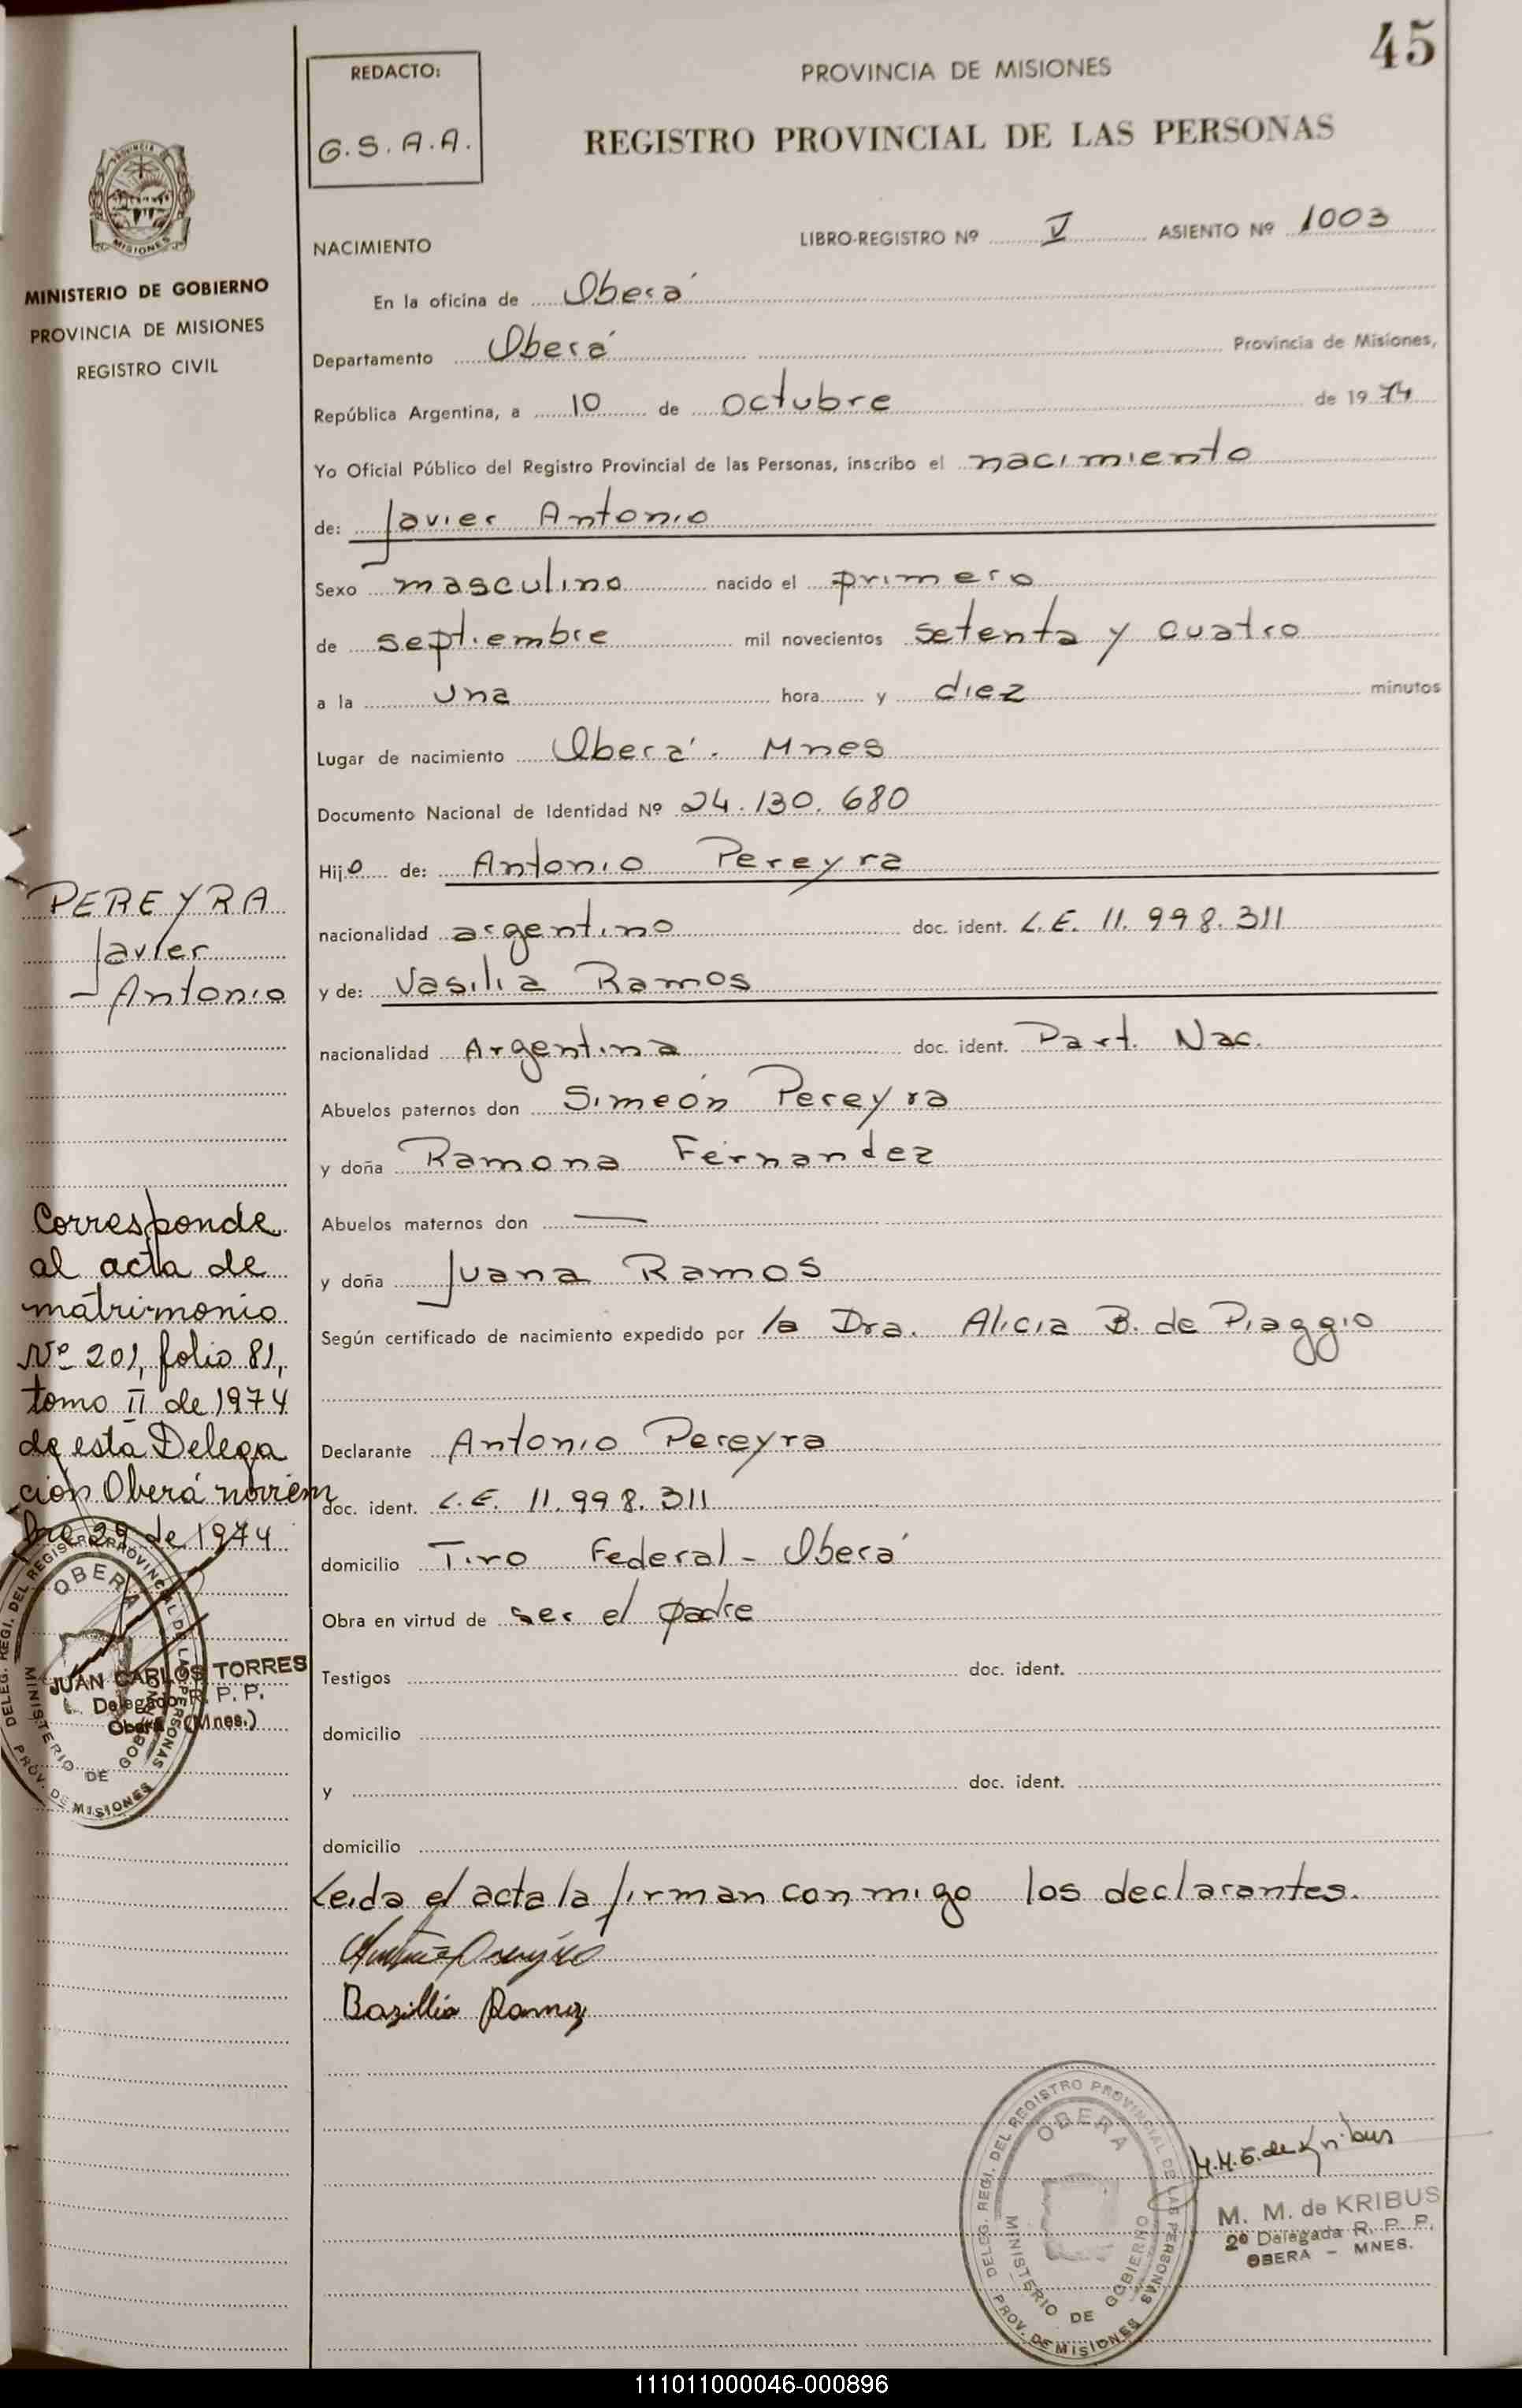 45
REDACTO:
G. S. A. A.
PROVINCIA DE MISIONES
REGISTRO PROVINCIAL DE LAS PERSONAS
NACIMIENTO
LIBRO-REGISTRO Nº V ASIENTO Nº 1003
MINISTERIO DE GOBIERNO
PROVINCIA DE MISIONES
REGISTRO CIVIL
En la oficina de Oberá
Departamento Oberá Provincia de Misiones,
República Argentina, a 10 de octubre de 1974
Yo Oficial Público del Registro Provincial de las Personas, inscribo el nacimiento
de: Javier Antonio
Sexo masculino nacido el primero
de septiembre mil novecientos setenta y cuatro
a la una hora y diez minutos
Lugar de nacimiento Oberá. Mnes
Documento Nacional de Identidad Nº 24.130.680
Hijo de: Antonio Pereyra
nacionalidad argentino doc. ident. L.E. 11.998.311
y de: Vasilia Ramos
nacionalidad Argentina doc. ident. Part. Nac.
Abuelos paternos don Simeón Pereyra
y doña Ramona Fernandez
Abuelos maternos don —
y doña Juana Ramos
Según certificado de nacimiento expedido por la Dra. Alicia B. de Piaggio
Declarante Antonio Pereyra
doc. ident. L.E. 11.998.311
domicilio Tiro Federal - Oberá
Obra en virtud de ser el padre
Testigos doc. ident.
domicilio
y doc. ident.
domicilio
Leida el acta la firman conmigo los declarantes.
Bazillia Ramos
PEREYRA
Javier
Antonio
Corresponde
al acta de
matrimonio
Nº 201, folio 81,
tomo II de 1974
de esta Delega
ción Oberá noviem
bre 29 de 1974
DELEG. REGI. DEL REGISTRO PROVINCIAL DE LAS PERSONAS
OBERA
MINISTERIO DE GOBIERNO
PROV. DE MISIONES
JUAN CARLOS TORRES
Delegado R. P. P.
Oberá (Mnes.)
DELEG. REGI. DEL REGISTRO PROVINCIAL DE LAS PERSONAS
OBERA
MINISTERIO DE GOBIERNO
PROV. DE MISIONES
M.M.G. de Kribus
M. M. de KRIBUS
2º Delegada R. P. P.
OBERA - MNES.
111011000046-000896